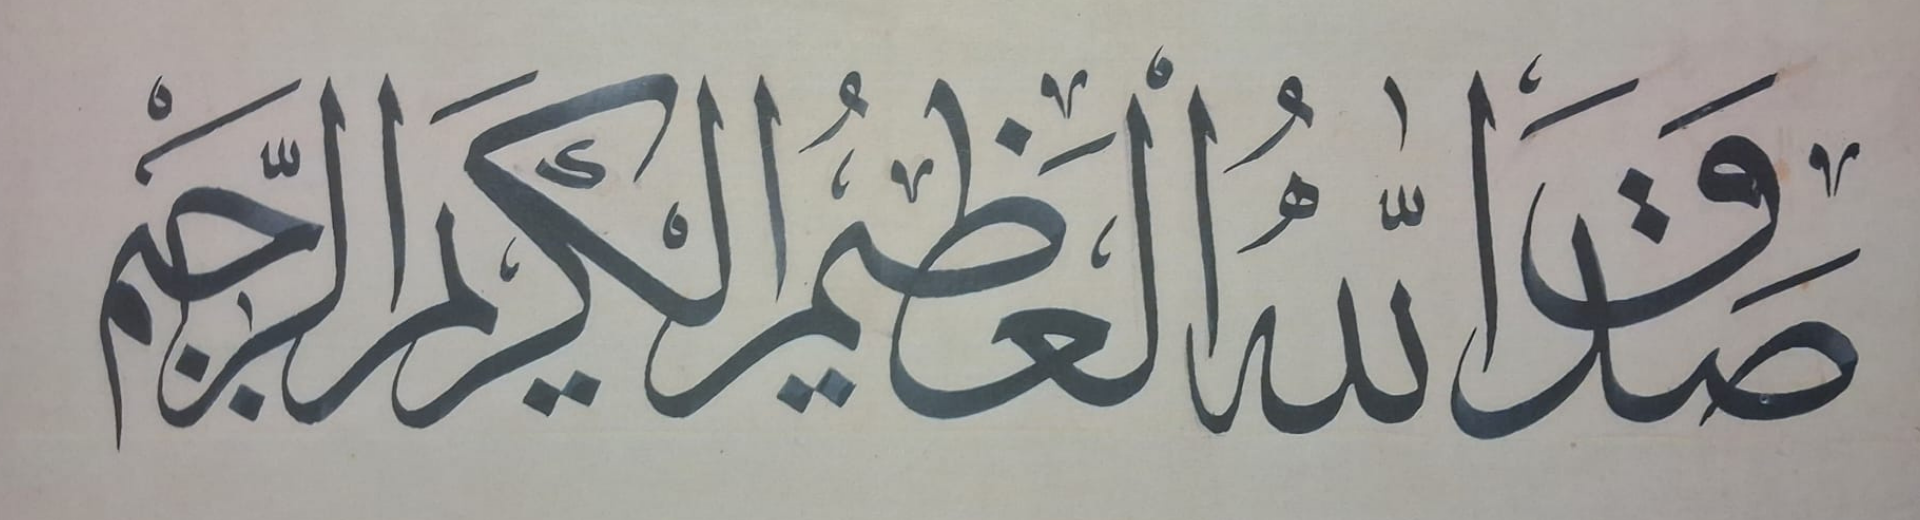 صَدَقَ اللّٰهُ الْعَظِيمُ الْكَرِيمُ الرَّحِيمُ